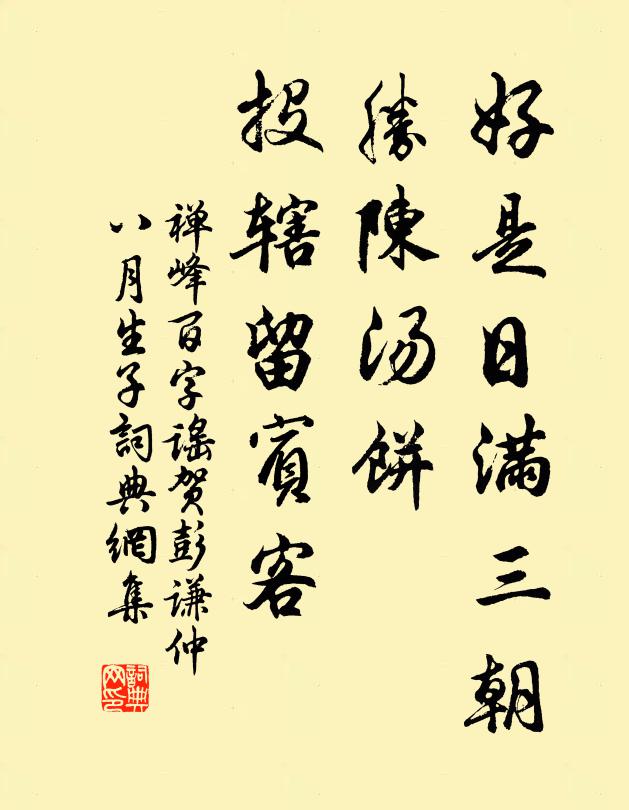 好是日满三朝
勝陳汤餅
投辖留賓客
禅峰百字謡贺彭谦仲
八月生子詞典網集
詞典網印